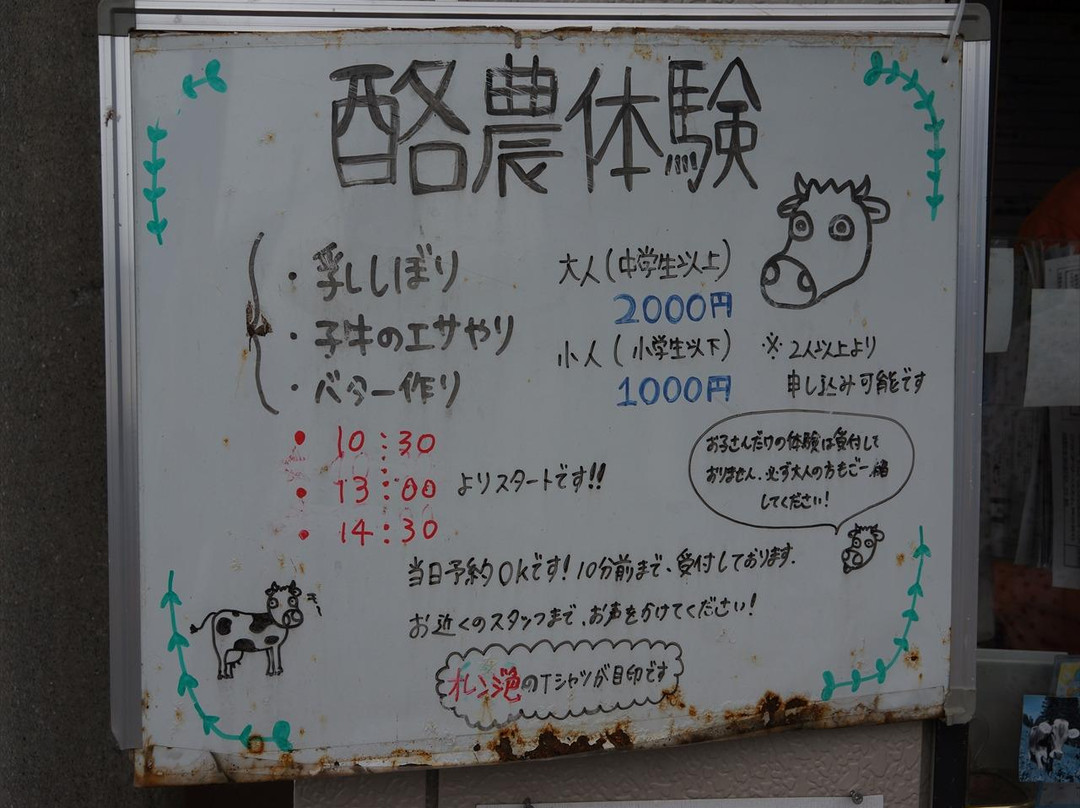 酪農体験
・乳ししぼり
・子牛のエサやり
・バター作り
大人(中学生以上)
2000円
小人(小学生以下)
1000円
※2人以上より
申し込み可能です
お子さんだけの体験は受付して
おりません。必ず大人の方もご一緒
してください!
・10:30
・13:00
・14:30
よりスタートです!!
当日予約OKです!10分前まで、受付しております.
お近くのスタッフまで、お声をかけてください!
オレンジ色のTシャツが目印です